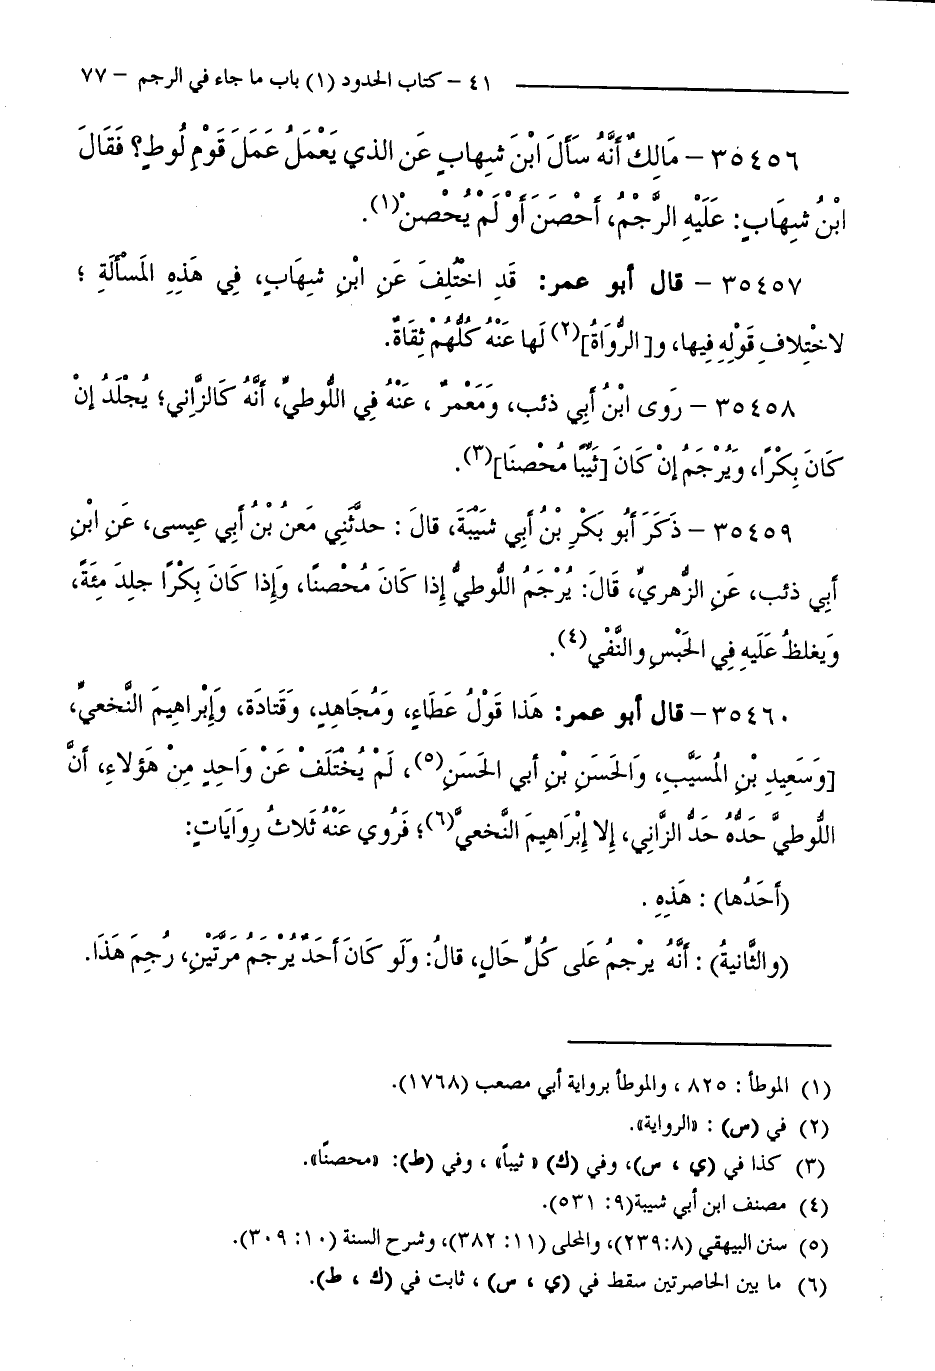 ٤١ - كتاب الحدود (١) باب ما جاء في الرجم - ٧٧
٣٥٤٥٦ - مَالِكٌ أَنَّهُ سَأَلَ ابْنَ شِهابٍ عَن الذي يَعْمَلُ عَمَلَ قَوْمِ لُوطٍ؟ فَقَالَ
ابْنُ شِهَابٍ: عَلَيْهِ الرَّجْمُ، أَحْصَنَ أَوْ لَمْ يُحْصنْ(١).
٣٥٤٥٧ - قال أبو عمر: قَدِ اخْتُلِفَ عَنِ ابْنِ شهَابٍ، فِي هَذِهِ المَسْأَلَةِ ؛
لاخْتِلافِ قَوْلِهِ فِيها، و[الرُّوَاةُ](٢) لَها عَنْهُ كُلُّهُمْ ثِقَاةٌ.
٣٥٤٥٨ - رَوى ابْنُ أَبِي ذئب، وَمَعْمرٌ ، عَنْهُ فِي اللُّوطيِّ، أَنَّهُ كَالزَّاني؛ يُجْلَدُ إنْ
كَانَ بِكْرًا، وَيُرْجَمُ إنْ كَانَ [ثَيِّبًا مُحْصنَا](٣).
٣٥٤٥٩ - ذَكَرَ أَبُو بَكْرِ بْنُ أَبِي شَيْبَةَ، قالَ : حدثَّنِي مَعنُ بْنُ أبي عِيسى، عَنِ ابْنِ
أَبِي ذئب، عَنِ الزُّهريِّ، قَالَ: يُرْجَمُ اللُّوطيُّ إذا كَانَ مُحْصنًا، وَإِذا كَانَ بِكْرًا جلِدَ مِئَةً،
وَيغلظُ عَلَيهِ فِي الحَبْسِ والنَّفْي(٤).
٣٥٤٦٠ - قال أبو عمر: هَذا قَوْلُ عَطَاءٍ، وَمُجَاهِدٍ، وَقَتَادَةَ، وَإِبْراهِيمَ النَّخعيِّ،
[وَسَعِيدِ بْنِ المُسَيَّبِ، وَالحَسَنِ بْنِ أبي الحَسَنِ(٥)، لَمْ يُخْتَلَفْ عَنْ وَاحِدٍ مِنْ هَؤلاءِ، أنَّ
اللُّوطيَّ حَدُّهُ حَدُّ الزَّانِي، إلا إبْرَاهِيمَ النَّخعيَّ(٦)؛ فَرُوي عَنْهُ ثَلاثُ رِوَايَاتٍ:
(أَحَدُها) : هَذِهِ .
(والثَّانيةُ) : أَنَّهُ يرْجمُ عَلى كُلِّ حَالٍ، قالُ: وَلَو كَانَ أَحَدٌ يُرْجَمُ مَرَّتَيْنِ، رجِمَ هَذَا.
(١) الموطأ : ٨٢٥ ، والموطأ برواية أبي مصعب (١٧٦٨).
(٢) في (س) : «الرواية».
(٣) كذا في (ي ، س)، وفي (ك) « ثيباً» ، وفي (ط): «محصنًا».
(٤) مصنف ابن أبي شيبة(٩: ٥٣١).
(٥) سنن البيهقي (٢٣٩:٨)، والمحلى (١١: ٣٨٢)، وشرح السنة (١٠: ٣٠٩).
(٦) ما بين الحاصرتين سقط في (ي ، س) ، ثابت في (ك ، ط).